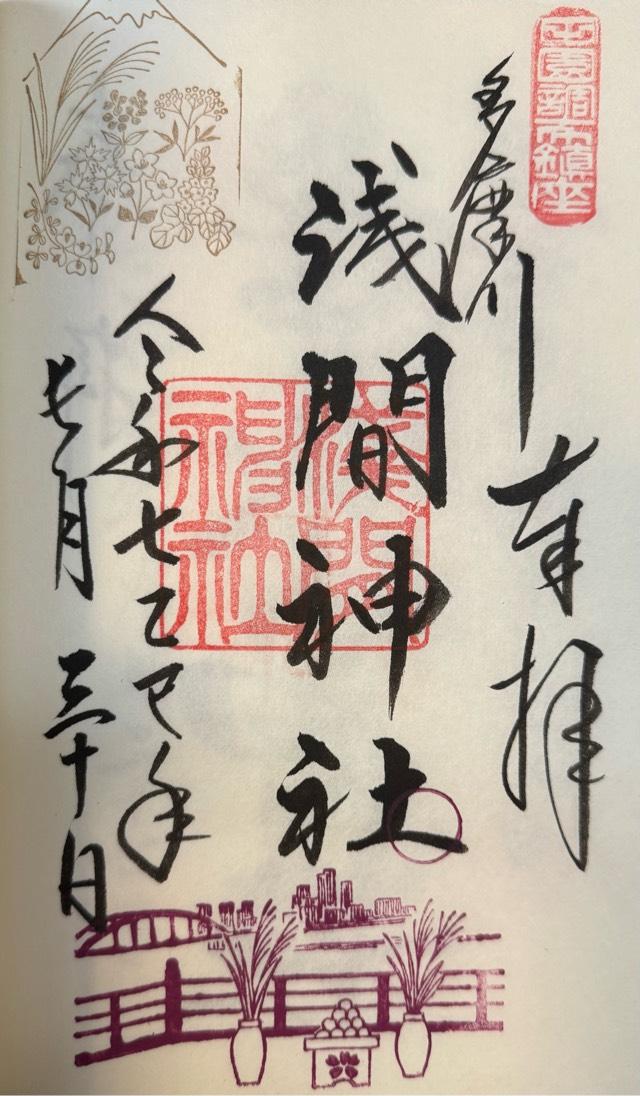 田園調布鎮座
奉拝
多摩川
浅間神社
淺間
神社
令和七乙巳年
七月三十日